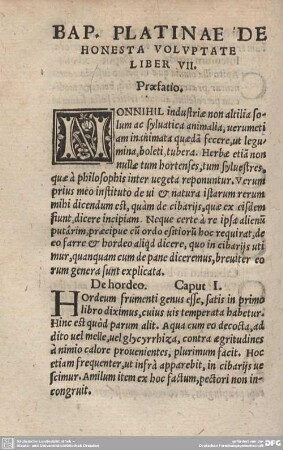 BAP. PLATINAE DE
HONESTA VOLVPTATE
LIBER VII.
Præfatio.
NONNIHIL industriæ non altilia so-
lum ac syluatica animalia, uerumeti
am inanimata quædā fecere, ut legu
mina, boleti, tubera. Herbæ etiā non
nullæ tum hortenses, tum syluestres,
quæ à philosophis inter uegeta reponuntur. Verum
prius meo instituto de ui & natura istarum rerum
mihi dicendum est, quàm de cibarijs, quæ ex eisdem
fiunt, dicere incipiam. Neque certe à re ipsa alienū
putârim, præcipue cū ordo esitiorū hoc requirat, de
eo farre & hordeo aliqd dicere, quo in cibarijs uti
mur, quanquam cum de pane diceremus, breuiter eo
rum genera sunt explicata.
De hordeo. Caput I.
Hordeum frumenti genus esse, satis in primo
libro diximus, cuius uis temperata habetur.
Hinc est quòd parum alit. Aqua cum eo decocta, ad
dito uel melle, uel glycyrrhiza, contra ægritudines
à nimio calore prouenientes, plurimum facit. Hoc
etiam frequenter, ut infrà apparebit, in cibarijs ue
scimur. Amilum item ex hoc factum, pectori non in-
congruit.
DFG